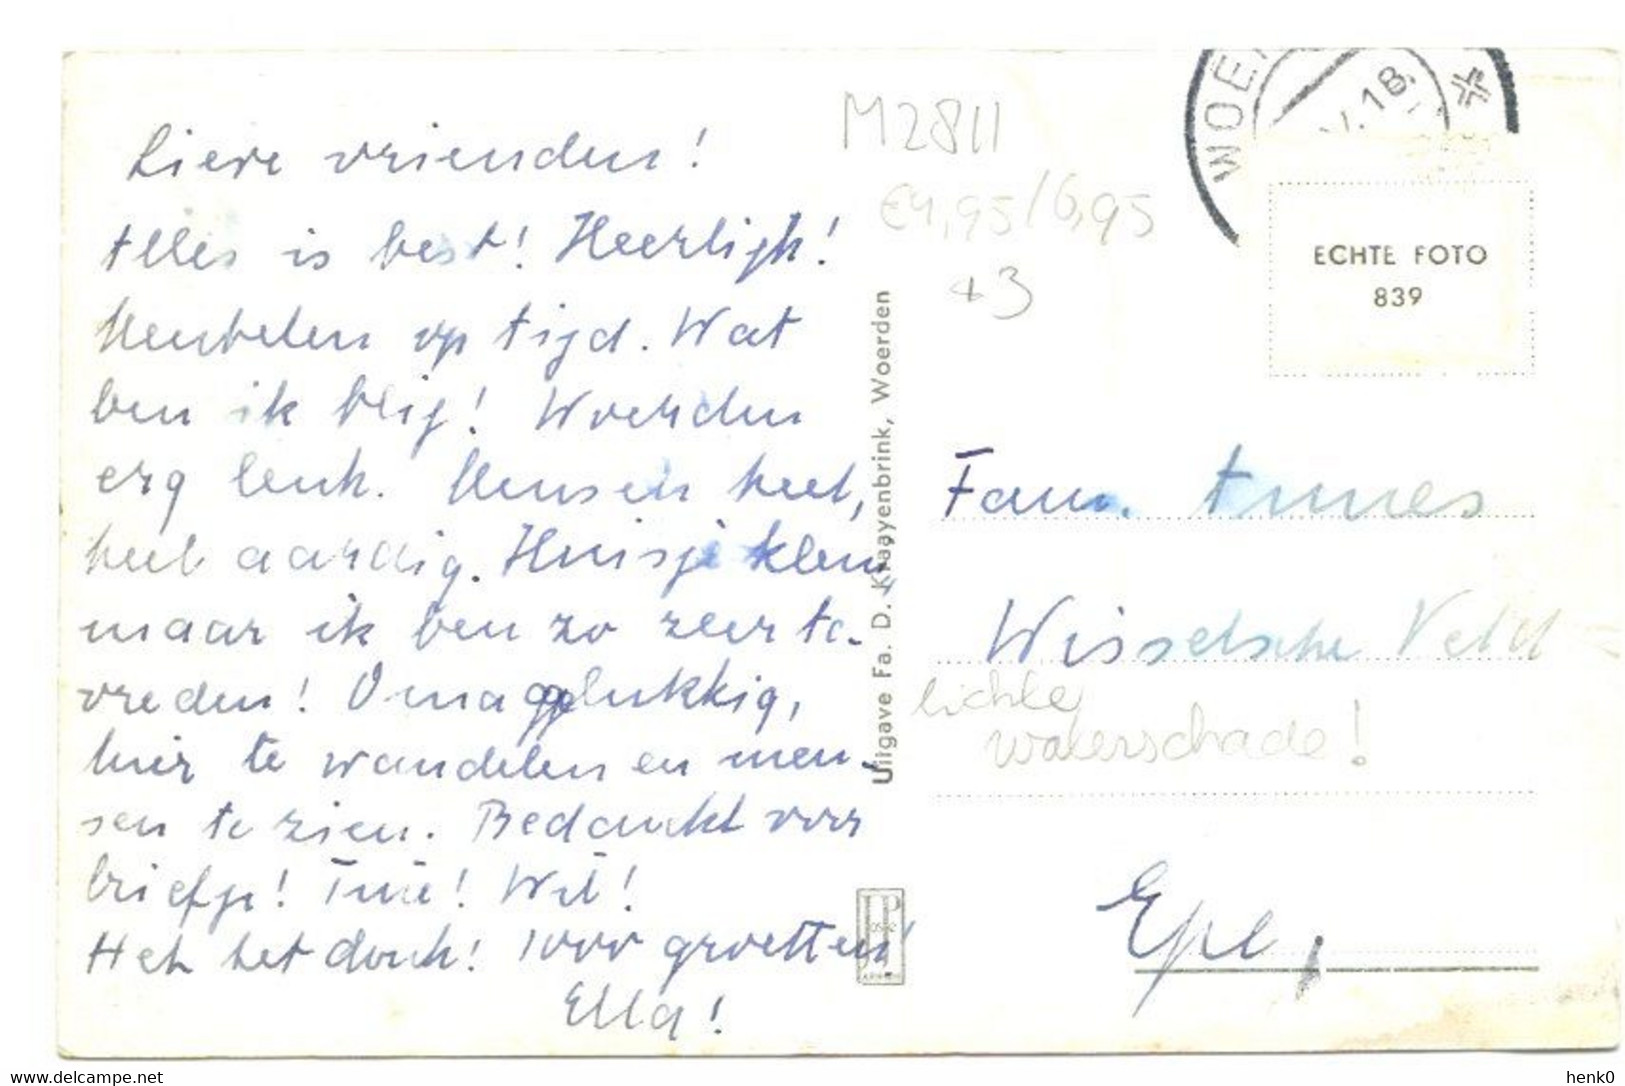 Lieve vrienden!
Alles is best! Heerlijk!
Meubelen op tijd. Wat
ben ik blij! Woerden
erg leuk. Mensen heel,
heel aardig. Huisje klein,
maar ik ben zo zeer te-
vreden! Oma gelukkig,
hier te wandelen en men-
sen te zien. Bedankt voor
briefje! Tine! Wil!
Heb het druk! 1000 groetten!
Ella!
Uitgave Fa. D. Kraayenbrink, Woerden
M2811
€4,95/6,95
+3
WOE
V.18
ECHTE FOTO
839
Fam.
Wisselsche Veld
lichte
waterschade!
Epe,
JP
www.delcampe.net
henk0